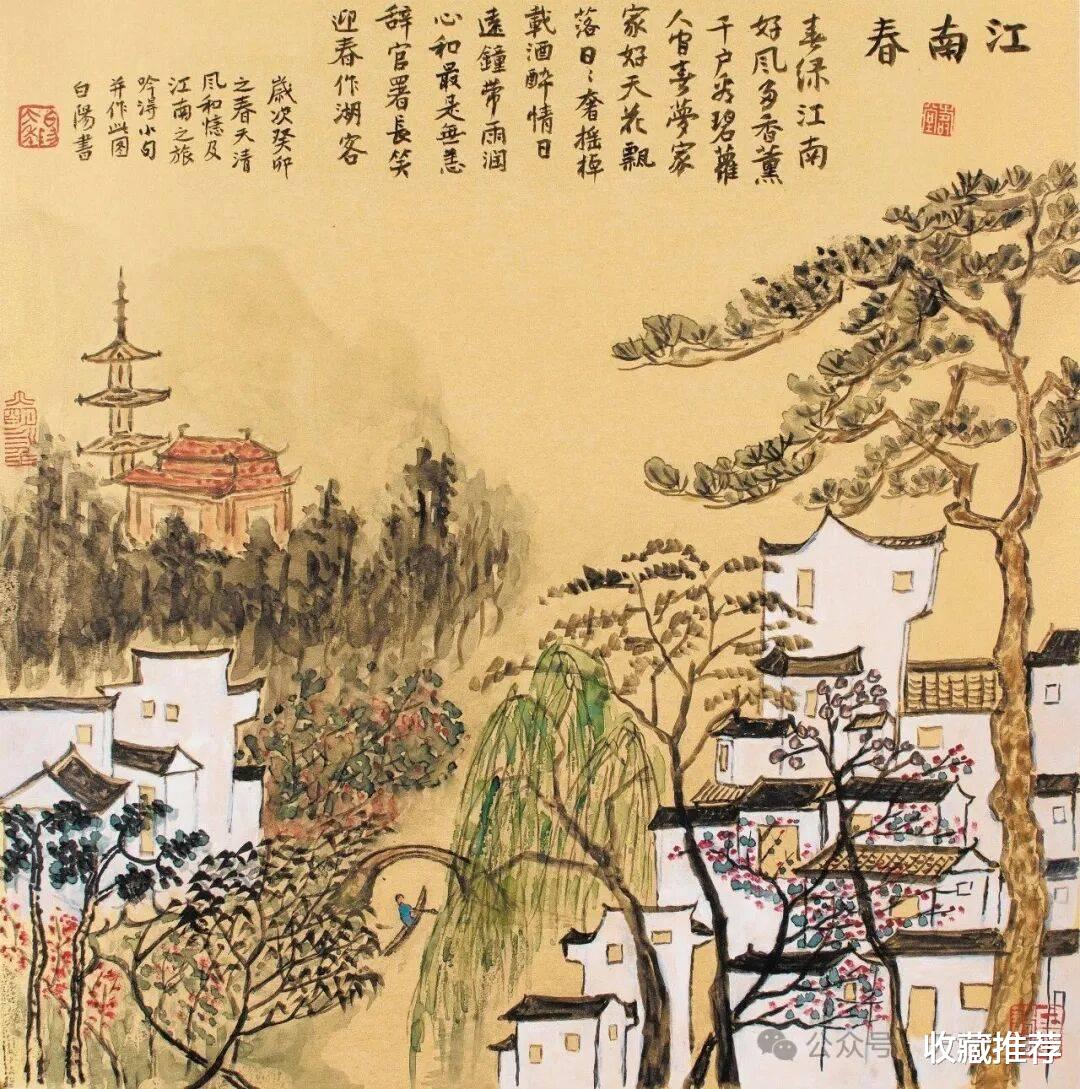 江南春
春绿江南
好风多香薰
千户秀碧蘿
人间春夢家
家好天花飄
落日〻奢摇棹
載酒醉情日
遠鐘带雨润
心和最是無恙
辞官署長笑
迎春作湖客
歲次癸卯
之春天清
风和憶及
江南之旅
吟得小句
并作此图
白陽書
公众号
收藏推荐